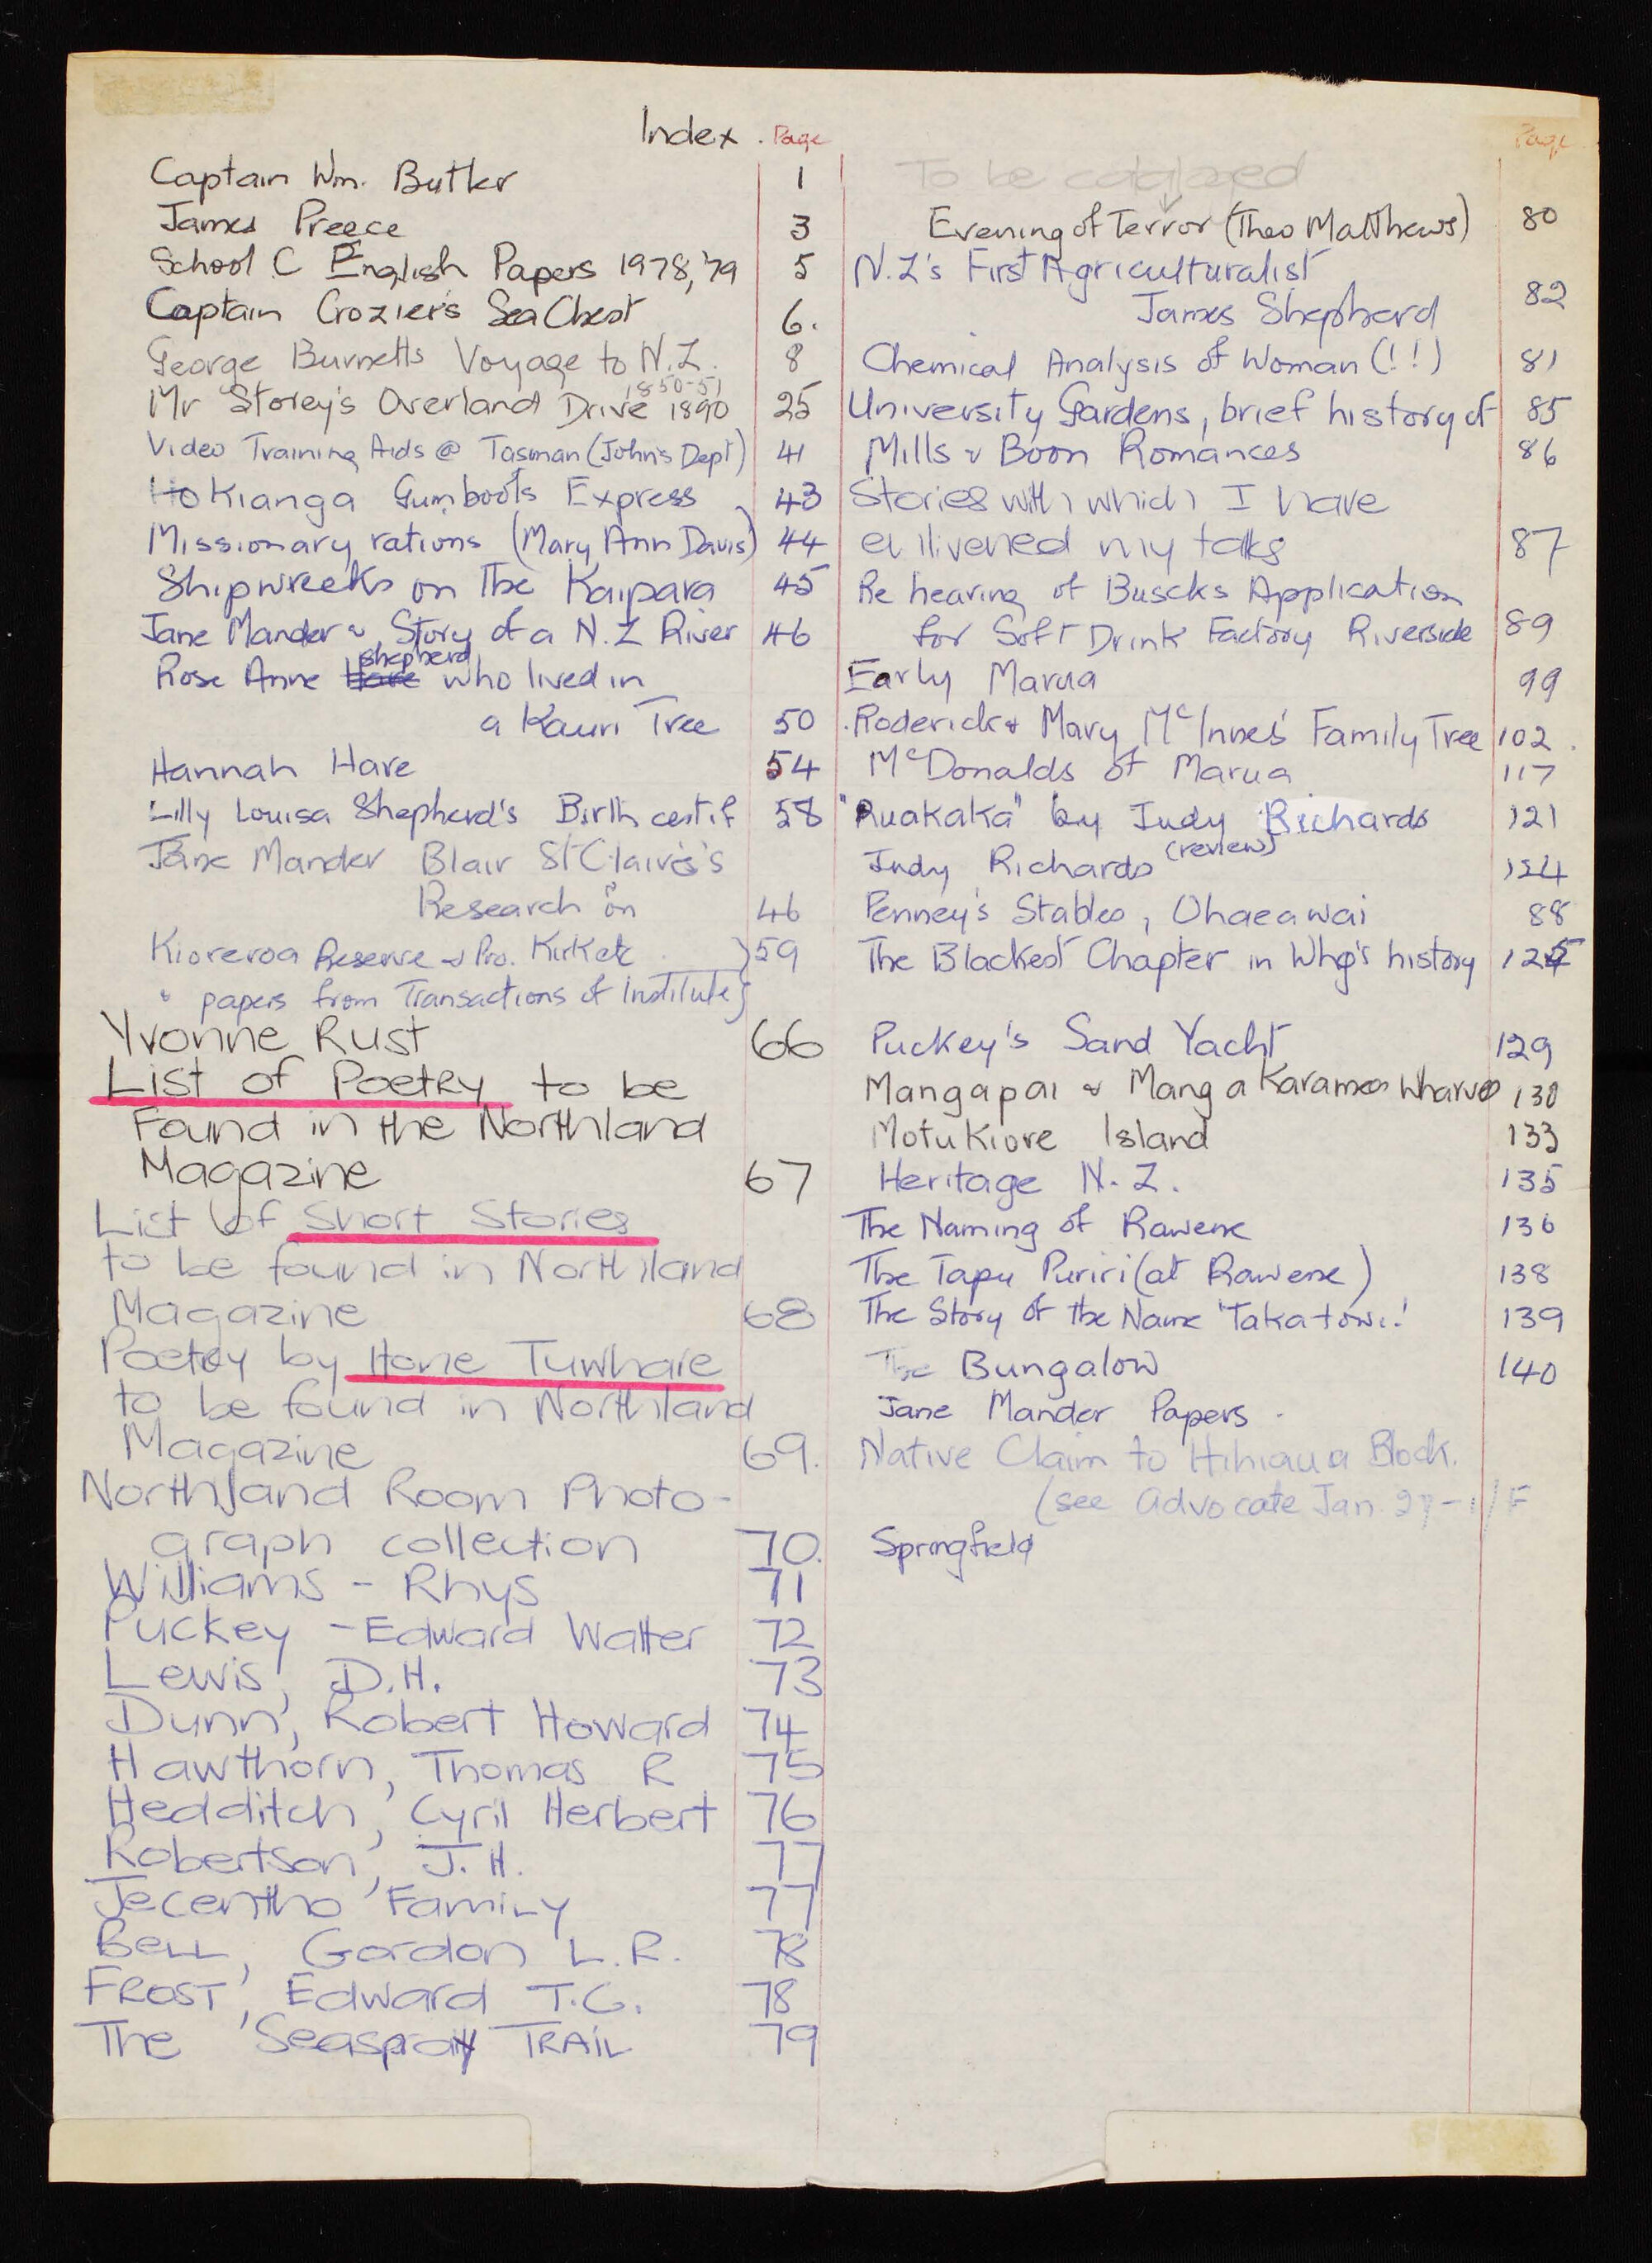 Index . Page
Captain Wm. Butler 1
James Preece 3
School C English Papers 1978, '79 5
Captain Crozier's Sea Chest 6.
George Burnetts Voyage to N.Z. 8
1850-51
Mr Storey's Overland Drive 1890 25
Video Training Aids @ Tasman (John's Dept) 41
Hokianga Gumboots Express 43
Missionary rations (Mary Ann Davis) 44
Shipwrecks on The Kaipara 45
Jane Mander & Story of a N.Z River 46
shepherd
Rose Anne Hare who lived in
a Kauri Tree 50
Hannah Hare 54
Lilly Louisa Shepherd's Birth certif 58
Jane Mander Blair St Claire's
Research on 46
Kioreroa Reserve & Pro. Kirk etc } 59
" papers from Transactions of Institute }
Yvonne Rust 66
List of Poetry to be
Found in the Northland
Magazine 67
List of Short Stories
to be found in Northland
Magazine 68
Poetry by Hone Tuwhare
to be found in Northland
Magazine 69.
Northland Room Photo-
graph collection 70.
Williams - Rhys 71
Puckey - Edward Walter 72
Lewis, D.H. 73
Dunn, Robert Howard 74
Hawthorn, Thomas R 75
Hedditch, Cyril Herbert 76
Robertson, J.H. 77
Jecentho Family 77
Bell, Gordon L.R. 78
Frost, Edward T.G. 78
The 'Seaspray Trail 79
Page
To be catalogued
Evening of Terror (Theo Matthews) 80
N.Z's First Agriculturalist
James Shepherd 82
Chemical Analysis of Woman (!!) 81
University Gardens, brief history of 85
Mills & Boon Romances 86
Stories with which I have
enlivened my talks 87
Re hearing of Buscks Application
for Soft Drink Factory Riverside 89
Early Marua 99
Roderick & Mary McInnes' Family Tree 102.
McDonalds of Marua 117
"Ruakaka" by Judy Richards 121
Judy Richards (review) 124
Penney's Stables, Ohaeawai 88
The Blackest Chapter in Whg's history 125
Puckey's Sand Yacht 129
Mangapai & Manga Karamea Wharves 130
Motu Kiore Island 133
Heritage N.Z. 135
The Naming of Rawene 136
The Tapu Puriri (at Rawene) 138
The Story of the Name 'Takatowi.' 139
The Bungalow 140
Jane Mander Papers.
Native Claim to Hihiaua Block.
(see Advocate Jan.
Springfield